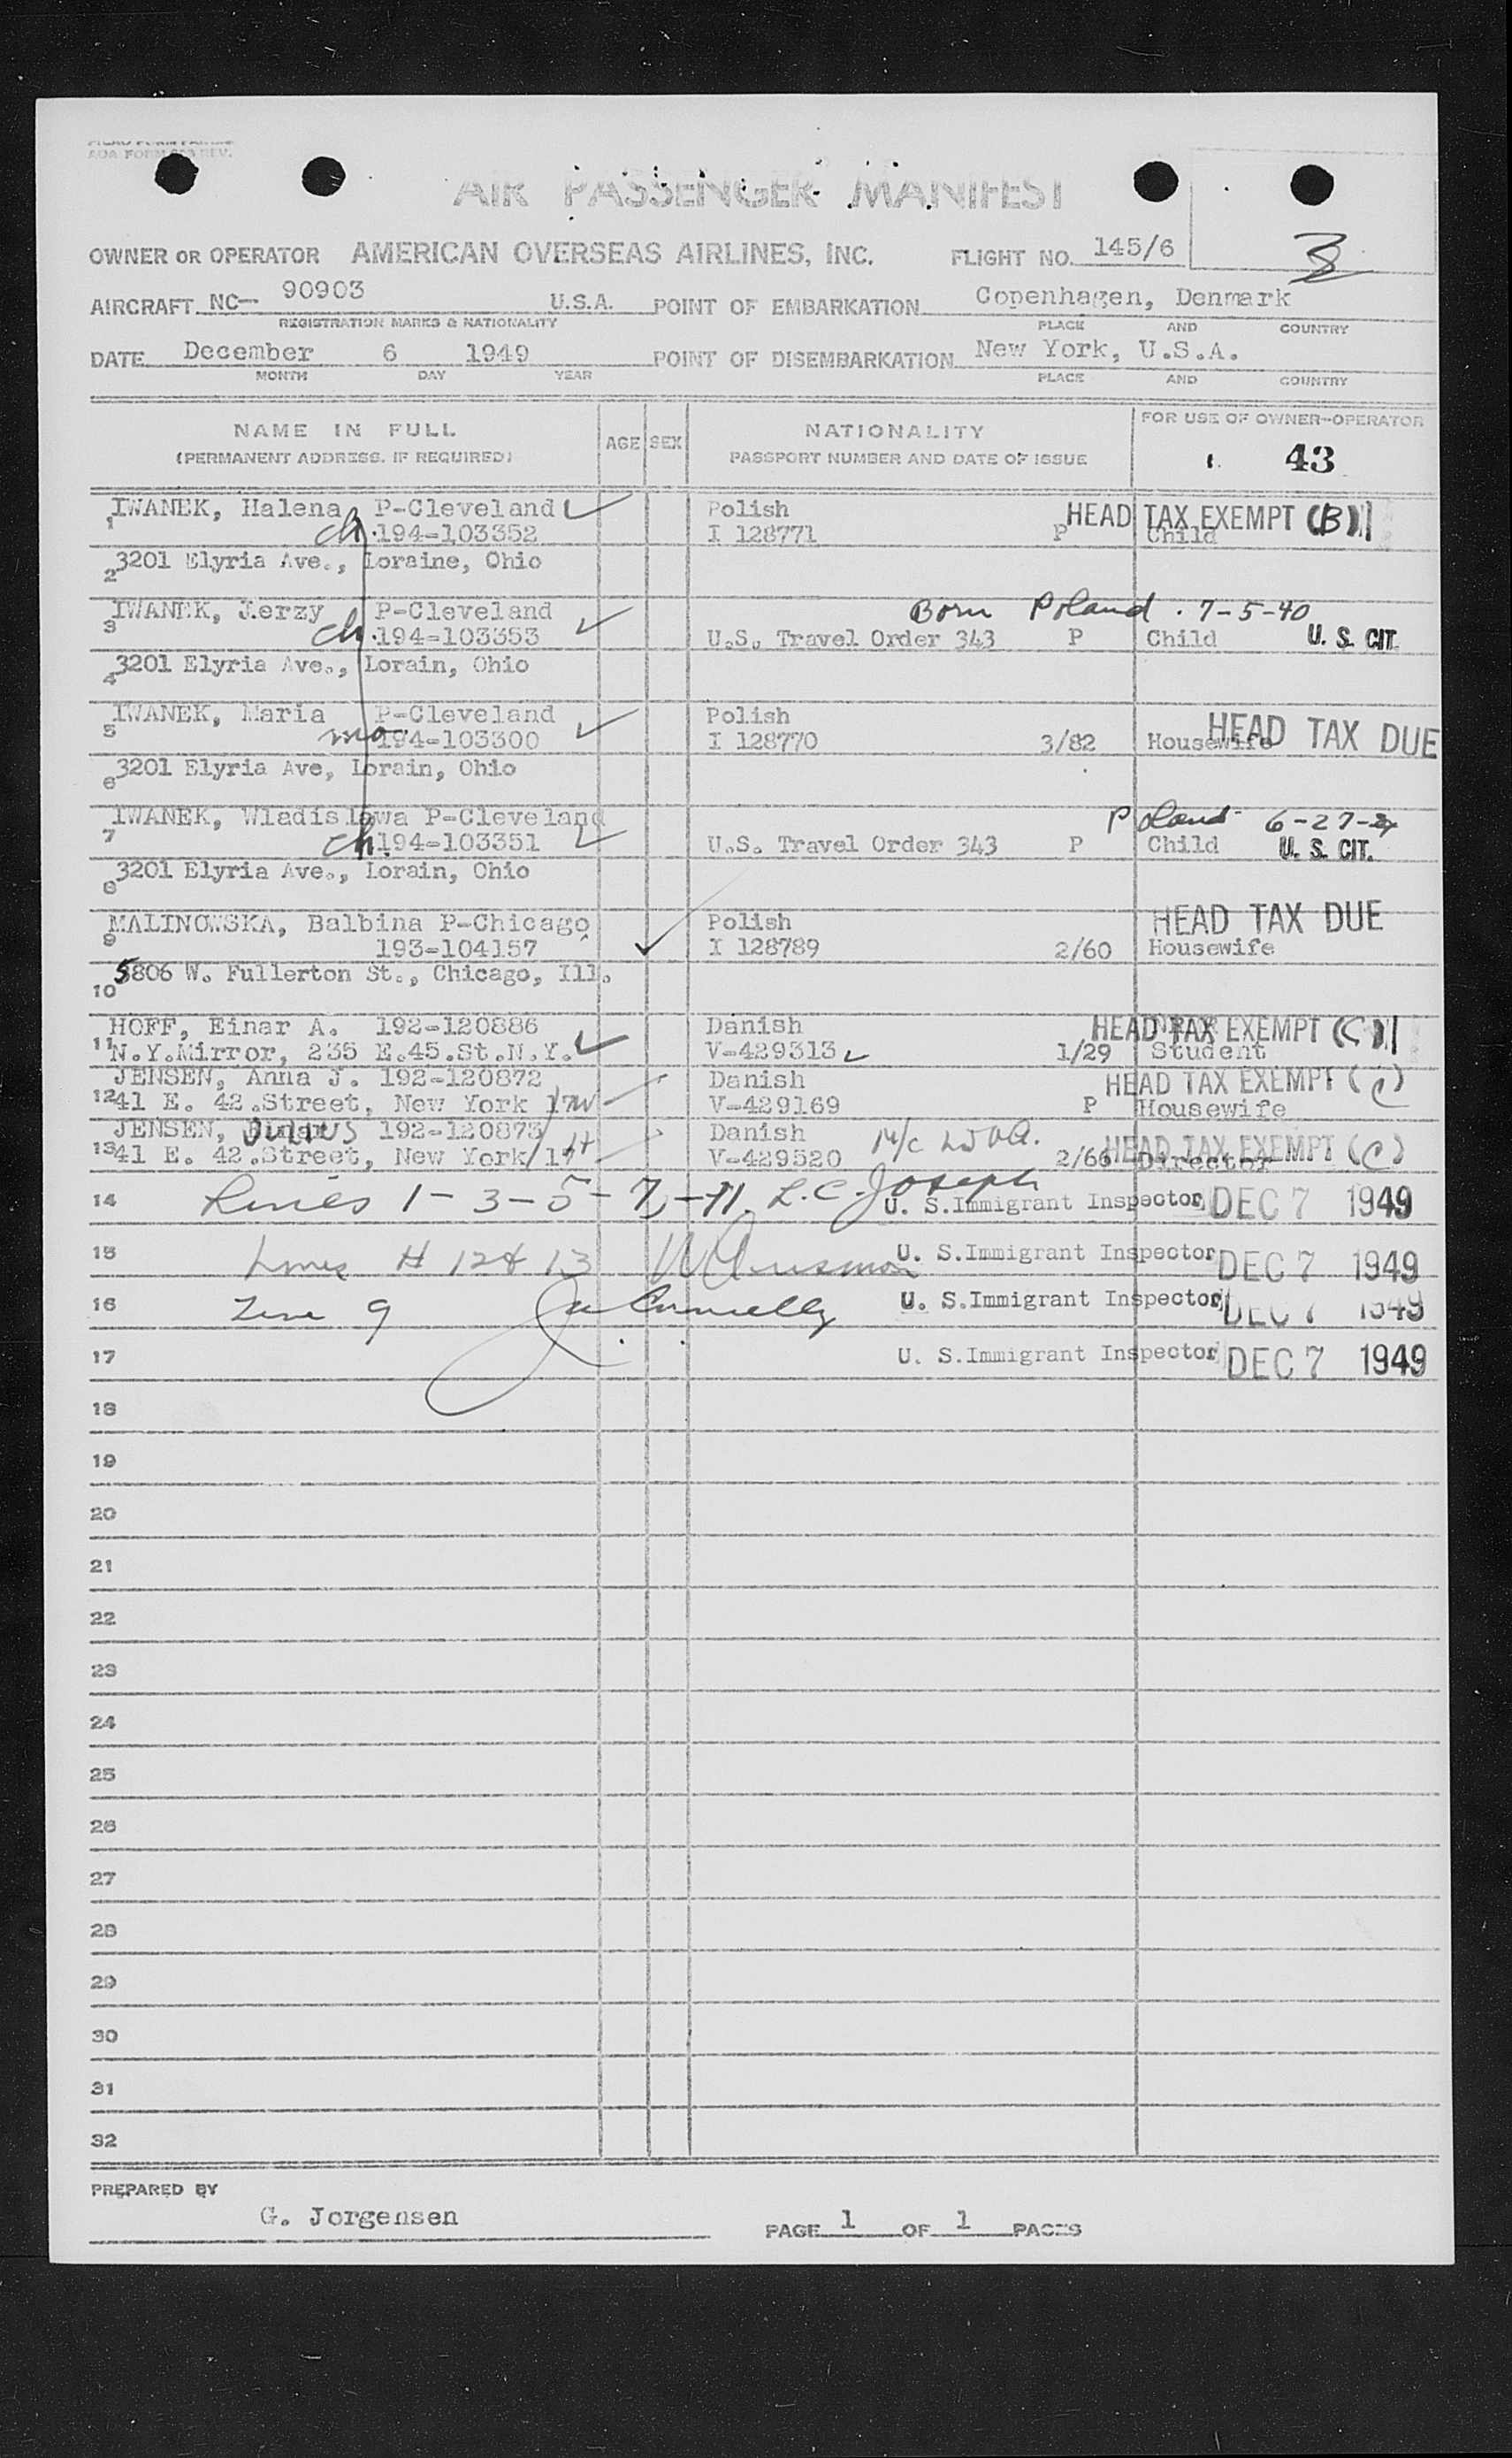 AOA FORM REV.
AIR PASSENGER MANIFEST
OWNER OR OPERATOR AMERICAN OVERSEAS AIRLINES, INC. FLIGHT NO. 145/6
AIRCRAFT NC- 90903 U.S.A. POINT OF EMBARKATION Copenhagen, Denmark
REGISTRATION MARKS & NATIONALITY PLACE AND COUNTRY
DATE December 6 1949 POINT OF DISEMBARKATION New York, U.S.A.
MONTH DAY YEAR PLACE AND COUNTRY
NAME IN FULL AGE SEX NATIONALITY FOR USE OF OWNER-OPERATOR
(PERMANENT ADDRESS, IF REQUIRED) PASSPORT NUMBER AND DATE OF ISSUE 43
1 IWANEK, Halena P-Cleveland Polish HEAD TAX EXEMPT (B)
ch. 194-103352 I 128771 P Child
2 3201 Elyria Ave., Loraine, Ohio
3 IWANEK, Jerzy P-Cleveland Born Poland. 7-5-40
ch. 194-103353 U.S. Travel Order 343 P Child U. S. CIT.
4 3201 Elyria Ave., Lorain, Ohio
5 IWANEK, Maria P-Cleveland Polish HEAD TAX DUE
mo 194-103300 I 128770 3/82 Housewife
6 3201 Elyria Ave, Lorain, Ohio
7 IWANEK, Wladislawa P-Cleveland Poland 6-27-
ch. 194-103351 U.S. Travel Order 343 P Child U. S. CIT.
8 3201 Elyria Ave., Lorain, Ohio
9 MALINOWSKA, Balbina P-Chicago Polish HEAD TAX DUE
193-104157 I 128789 2/60 Housewife
10 5806 W. Fullerton St., Chicago, Ill.
11 HOFF, Einar A. 192-120886 Danish HEAD TAX EXEMPT (C)
N.Y.Mirror, 235 E.45.St.N.Y. V-429313 1/29 Student
12 JENSEN, Anna J. 192-120872 Danish HEAD TAX EXEMPT (C)
41 E. 42.Street, New York 17 V-429169 P Housewife
13 JENSEN, JULIUS 192-120873 Danish HEAD TAX EXEMPT (C)
41 E. 42.Street, New York 17 V-429520 2/66 Director
14 Lines 1-3-5-7-11. L.C. Joseph U. S.Immigrant Inspector DEC 7 1949
15 Lines # 12 & 13 U. S.Immigrant Inspector DEC 7 1949
16 Line 9 Connelly U. S.Immigrant Inspector DEC 7 1949
17 U. S.Immigrant Inspector DEC 7 1949
18
19
20
21
22
23
24
25
26
27
28
29
30
31
32
PREPARED BY
G. Jorgensen PAGE 1 OF 1 PAGES